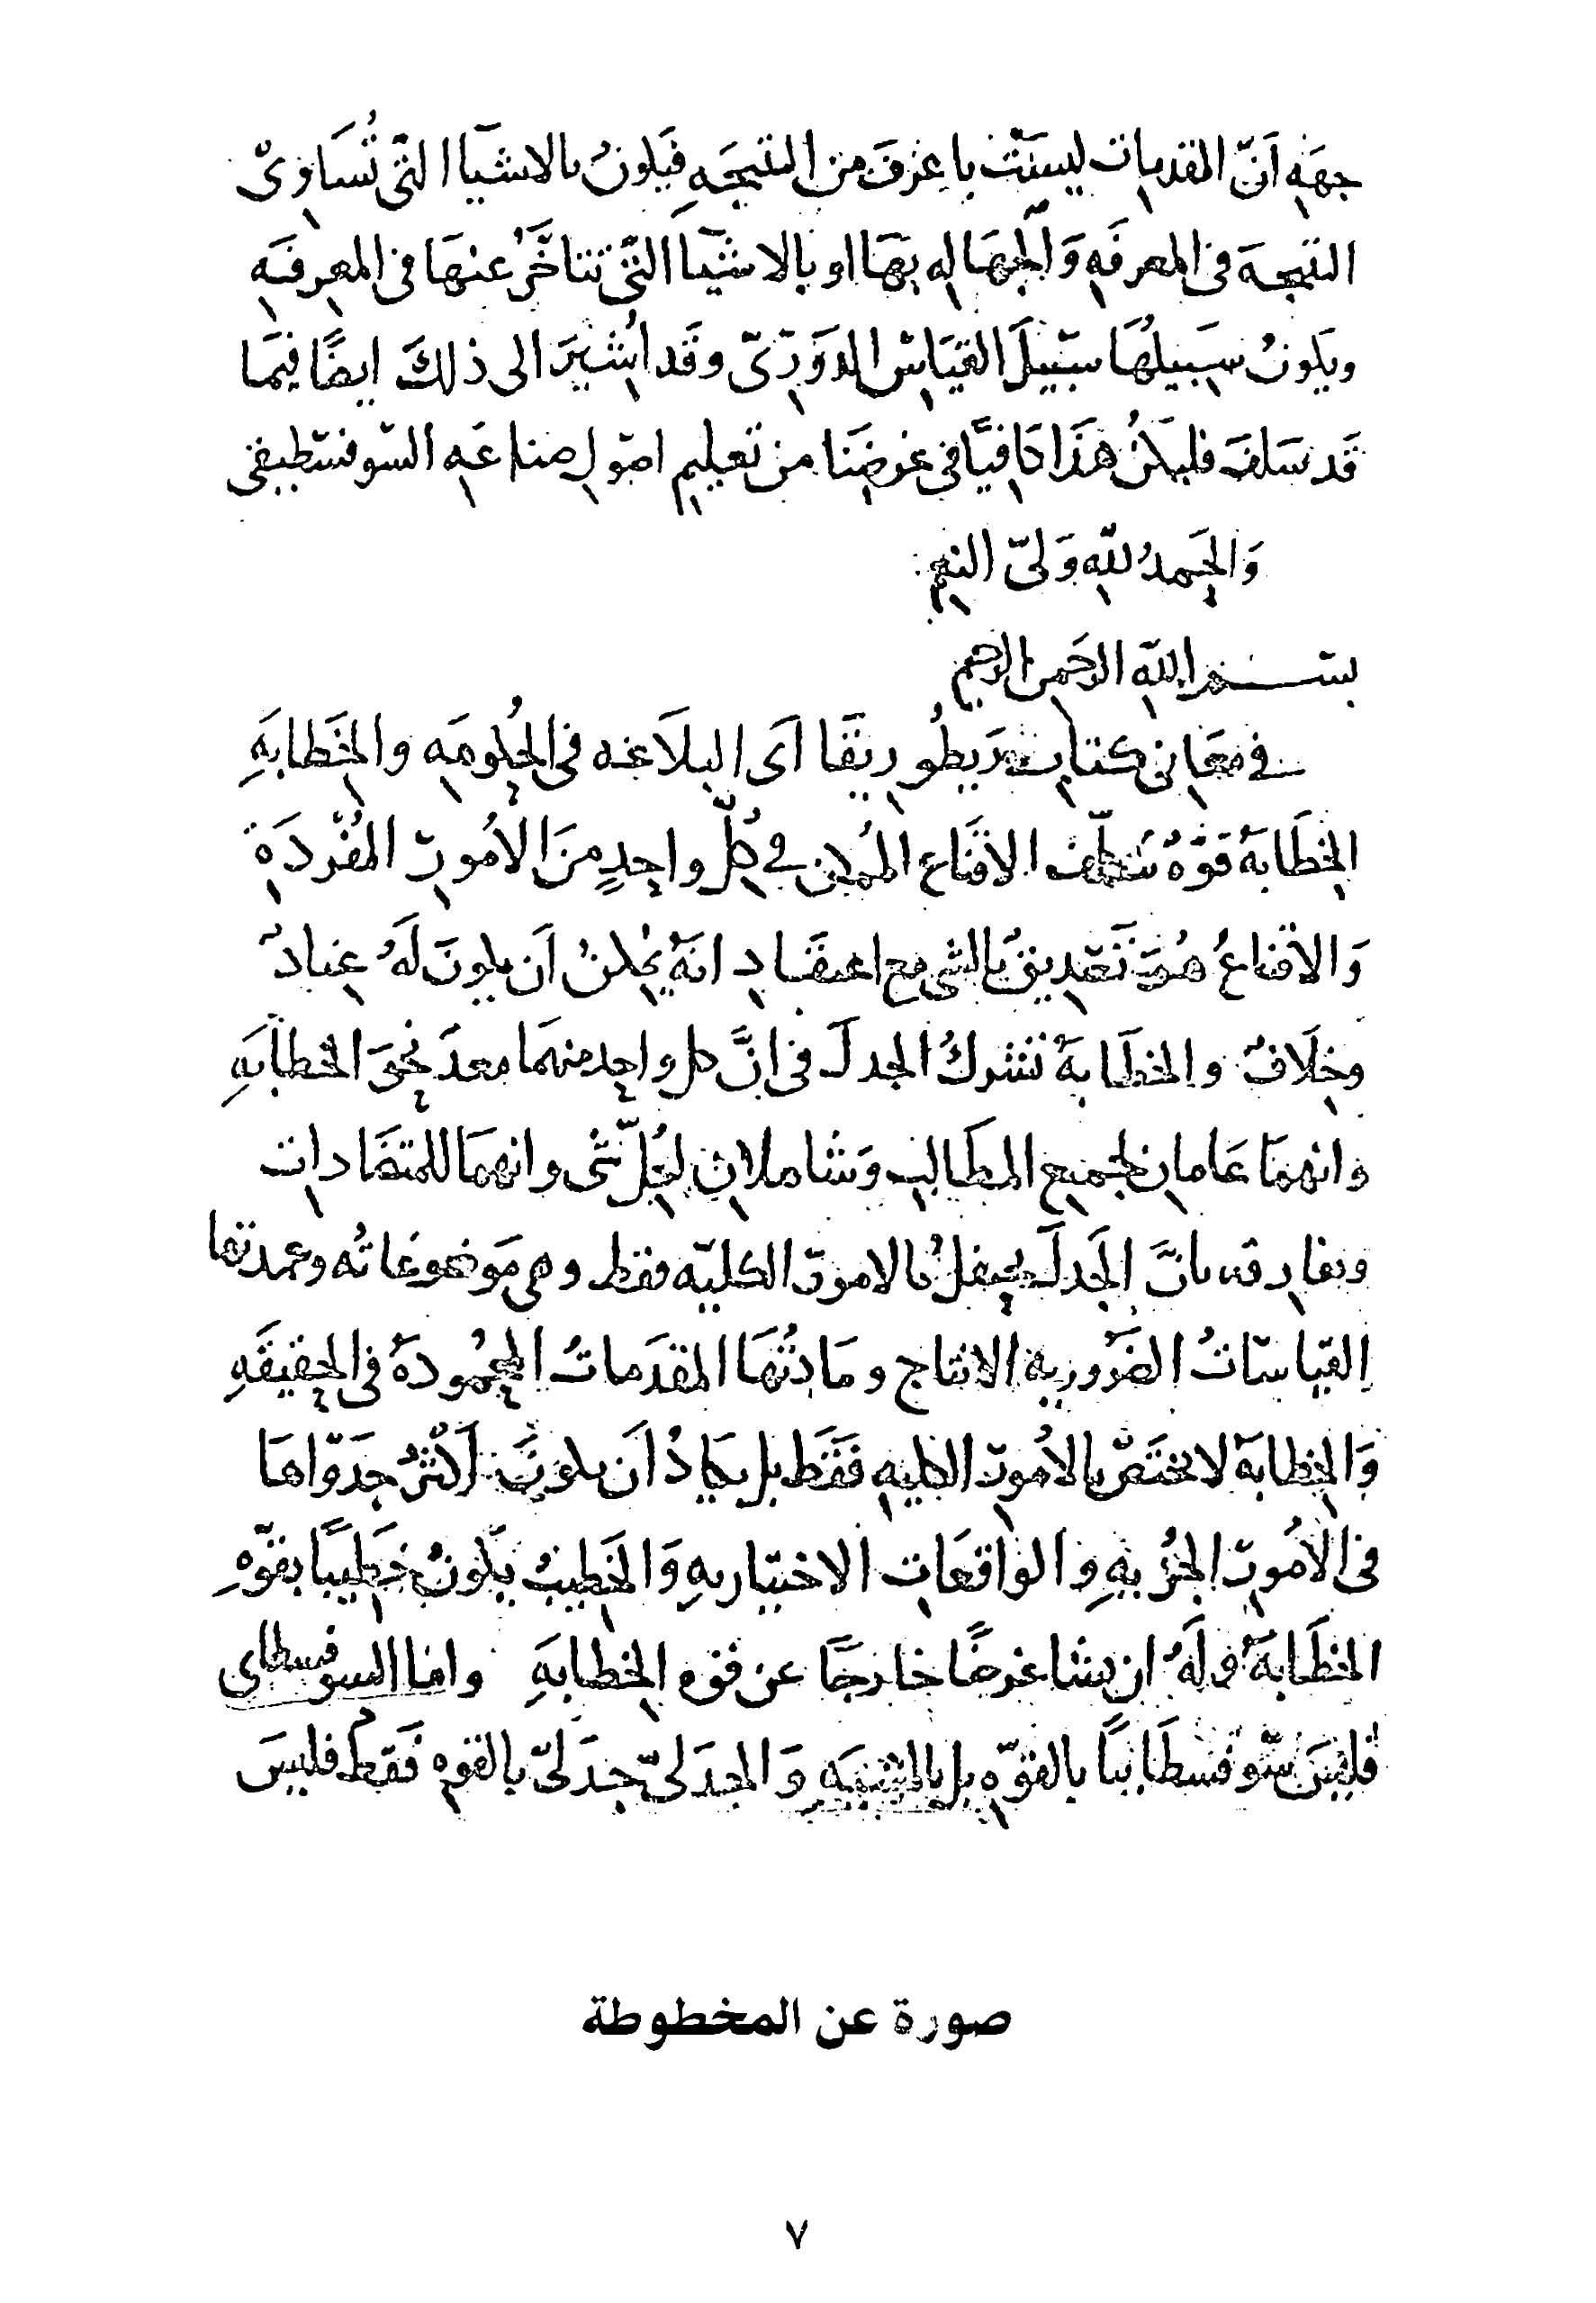 جهَهِ اَنّ المقدمات ليسَتْ باعرَفَ من النتيجَهِ فيَكونُ بالاشيَآ التّى تُسَاوِىْ
النتيجهَ فى المعرفَهِ وَالجهَالهِ بهَا او بالاشيَآ التّى تتاخَّرُ عنهَا فى المعرِفَهِ
ويكونُ سَبيلُهَا سَبيلَ القيَاس الدَوَرَىّ وقَد اُشيرَ الى ذلكَ ايضًا فيمَا
قَد سَلفَ فليَكنُ هذَا كافيًا فى غرضِنَا من تعليمِ اصُولِ صناعَهِ السّوفسَطيقى
وَالحَمدُ للّهِ وَلىّ النعِم
بسم اللّه الرحَمن الرحيم
فى معَانى كتاب رَيطُوريقَا اَى البلَاغه فى الحُكومَه والخَطابَهِ
الخطَابهَ قوّهٌ تتكلّف الاقنَاع المُمكن فى كُلّ واحِدٍ منَ الاُمورِ المُفْردَةِ
وَالاقناعُ هُوَ تَصَديقٌ بالشى مع اعتقَادِ انهَ يُمكنُ اَن يكونَ لَهُ عنادٌ
وخلَافٌ والخطَابةَ تشركُ الجدلَ فى انَّ كل واحِد منهمَا معدَ نحوَ الخطابَهِ
وانهمَا عَامان لجميع المطَالب وَشاملان لكُلّ شى وانهمَا للمتضَادات
وتفارقه بانَّ الجَدلَ يحفلُ بالامورِ الكليّه فقط وهى مَوضوعَاتُه وعمدتها
القياسَاتُ الضَروريه الانتاج ومَادتُهَا المقدَماتُ المحمُودهَ فى الحقيقَهِ
وَالخطابهَ لا تختَصّ بالاُمورِ الكليهِ فقَط بل يَكادُ اَن يكونَ اَكثرُ جدَوَاهَا
فى الاُمورِ الجُزيهِ والواقعَاتِ الاختياريهِ وَالخطيبُ يَكونُ خطيبًا بقوّهِ
الخطَابهَ وله ان يشا غرضًا خارجًا عن قوه الخطابَهِ واما السوفسطاى
فليسَ سّوفسطَاييًا بالقوّهِ بل بالمشيَهِ وَالجدَلىّ جدَلىّ بالقوهِ فقَط فليسَ
صورة عن المخطوطة
٧